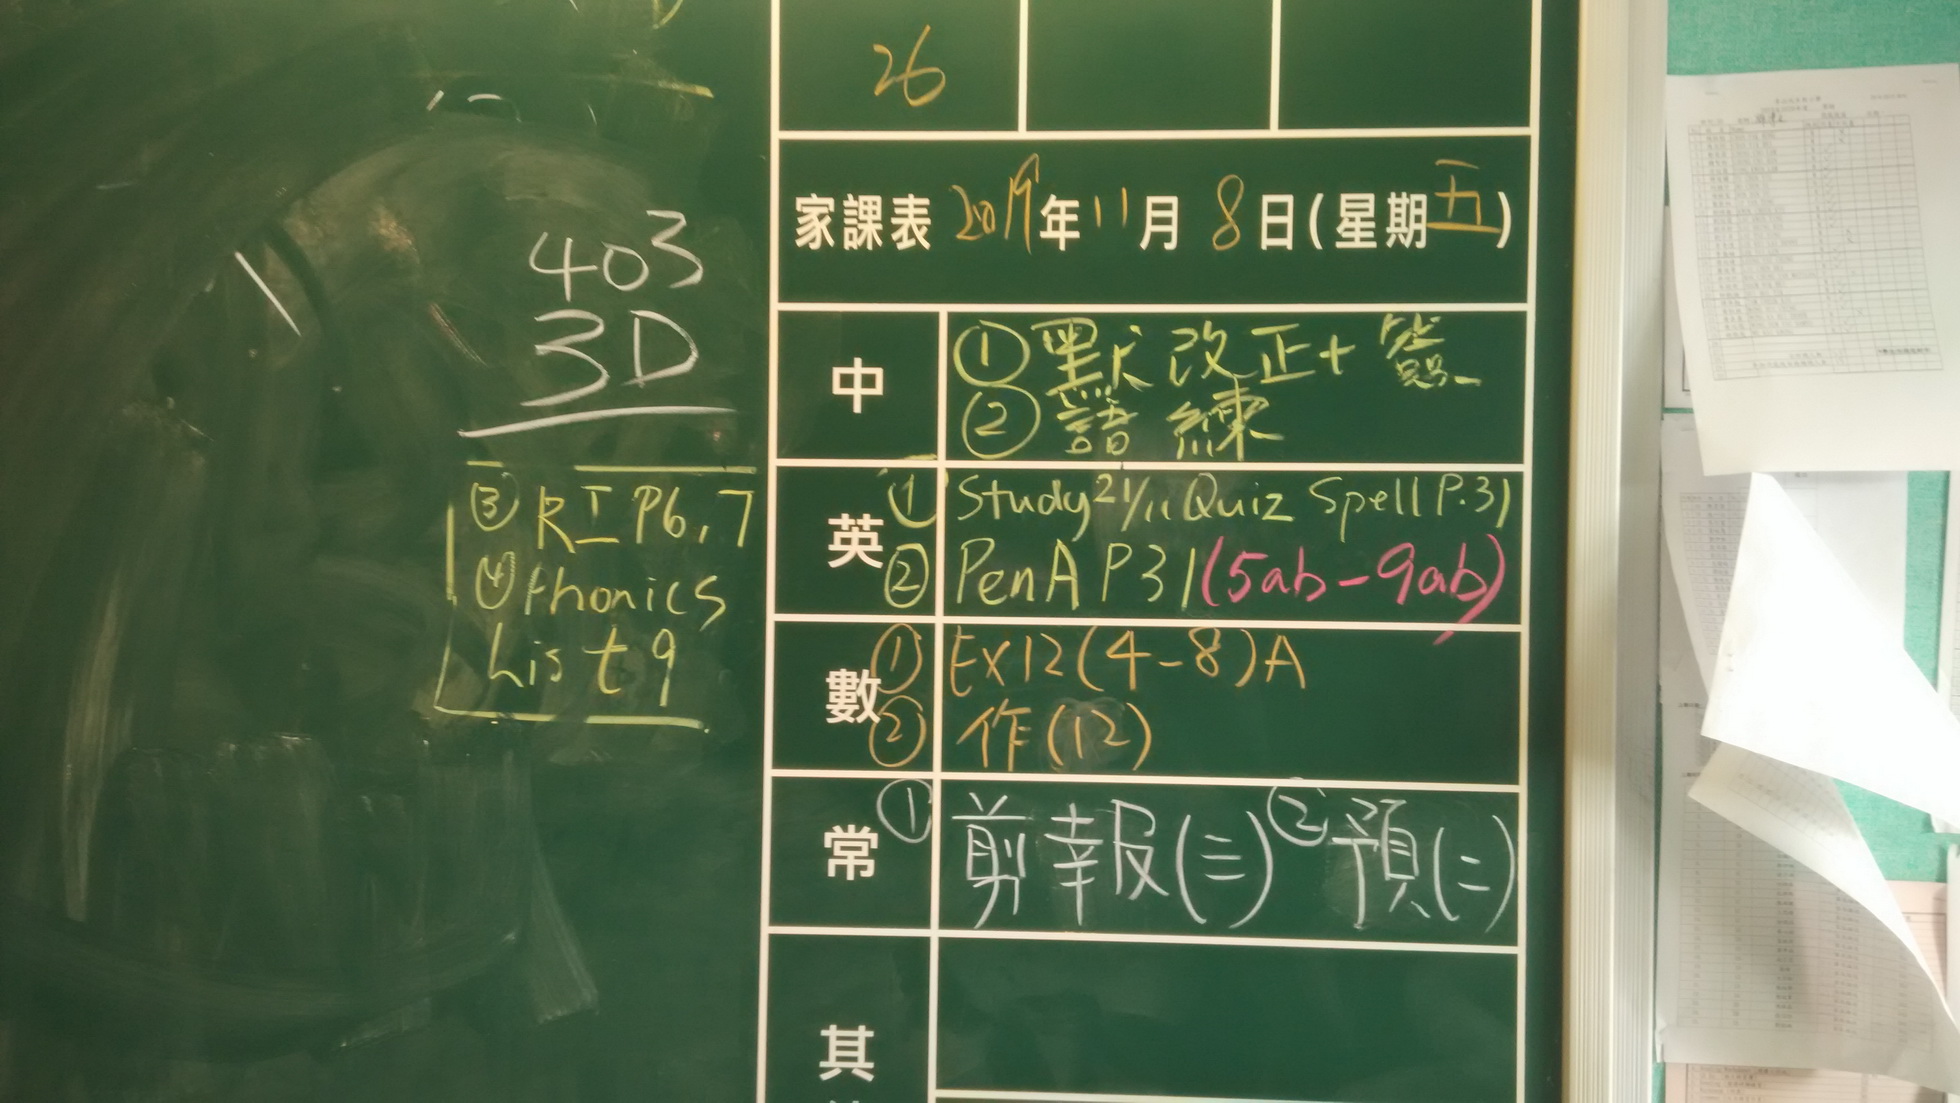 26
家課表 2019年11月8日(星期五)
403
3D
中
① 默 改正+簽
② 語練
英
① Study 21/11 Quiz Spell P.31
② PenA P31(5ab-9ab)
③ RI P6,7
④ Phonics
List 9
數
① Ex12(4-8)A
② 作(12)
常
① 剪報(三) ② 預(二)
其